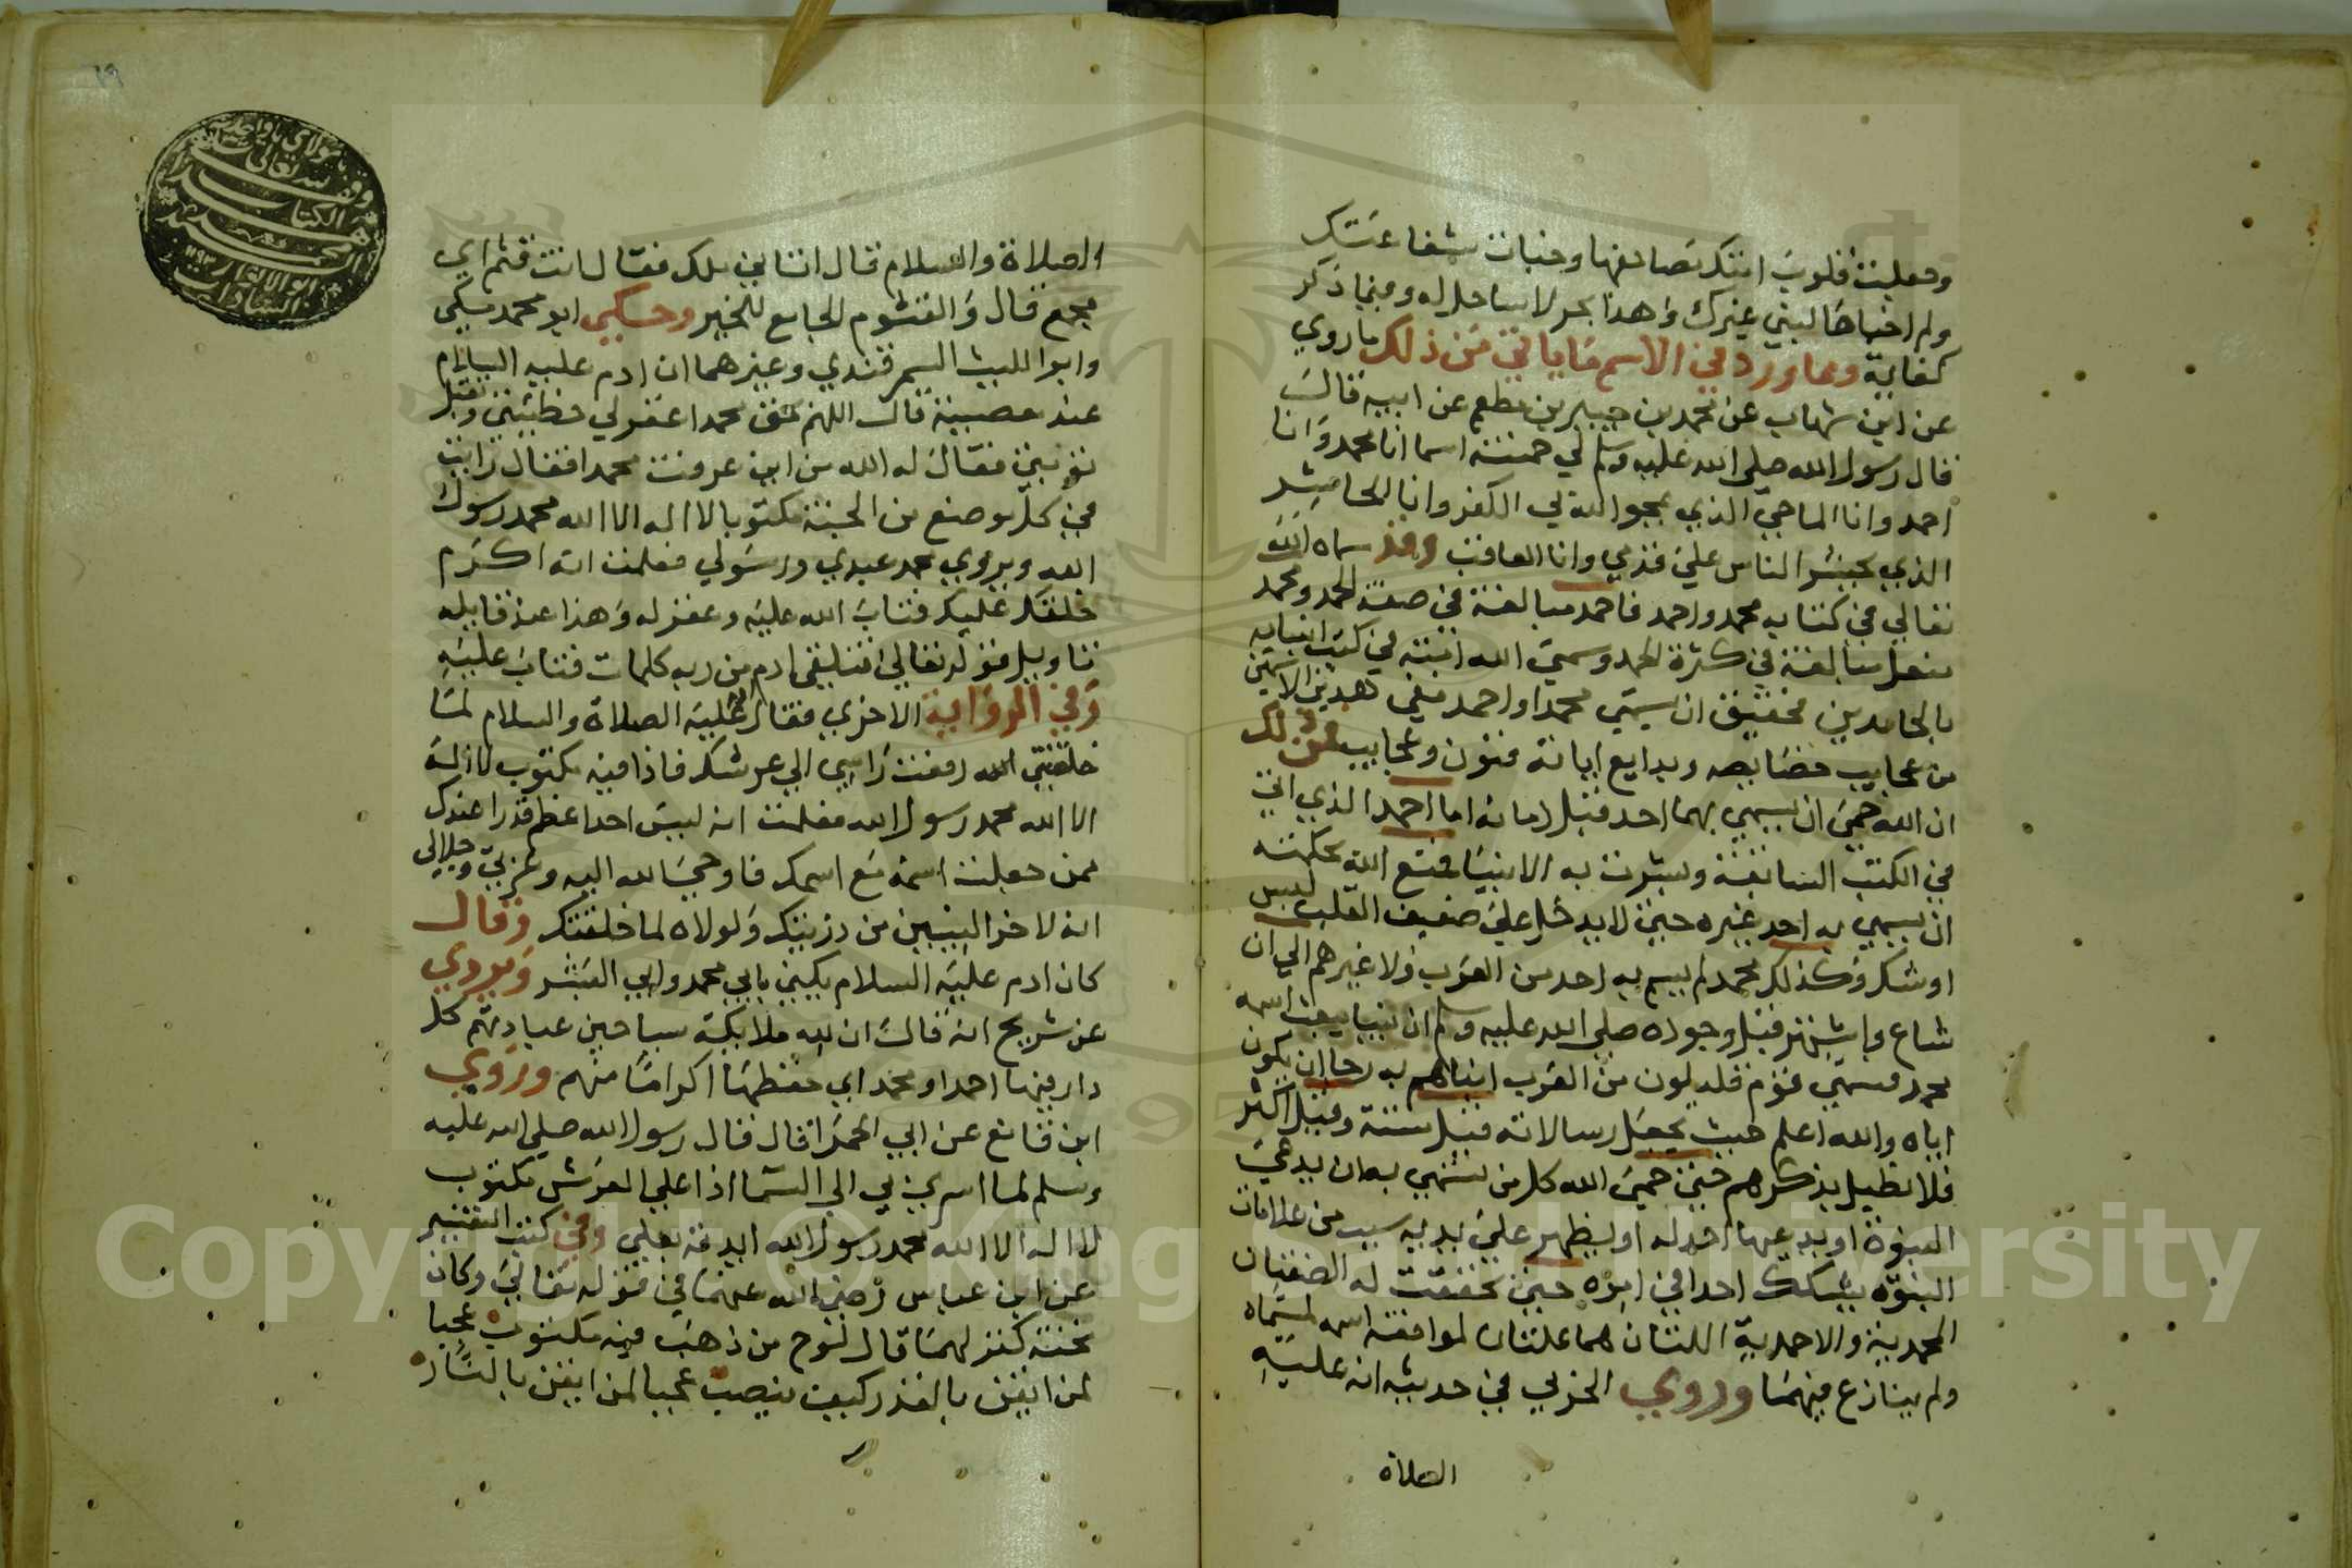 وجعلت قلوب امتك مصاحفها وخبات شفاعتك
ولم اخباها لنبي غيرك وهذا بحر لا ساحل له وفيما ذكر
كفاية ومما ورد في الاسم ما ياتي من ذلك ما روي
عن ابن شهاب عن محمد بن جبير بن مطعم عن ابيه قال
قال رسول الله صلى الله عليه وسلم لي خمسة اسما انا محمد وانا
احمد وانا الماحي الذي يمحو الله بي الكفر وانا الحاشر
الذي يحشر الناس علي قدمي وانا العاقب وقد سماه الله
تعالي في كتابه محمد واحمد فاحمد مبالغة في صفة الحمد ومحمد
مبالغة في كثرة الحمد وسمي الله امته في كتب انبيايه
بالحامدين فحقيق ان يسمي محمدا واحمد ففي هذين الاسمين
من عجايب خصايصه وبدايع اياته فنون وعجايب فمن ذلك
ان الله حمي ان يسمي بهما احد قبل زمانه اما احمد الذي اتي
في الكتب السابقة وبشرت به الانبيا فمنع الله بحكمته
ان يسمي به احد غيره حتي لا يدخل علي ضعيف القلب لبس
او شك وكذلك محمد لم يسم به احد من العرب ولا غيرهم الي ان
شاع واشتهر قبل وجوده صلى الله عليه وسلم ان نبيا يبعث اسمه
محمد فسمي قوم قليلون من العرب ابناهم به رجا ان يكون
اياه والله اعلم حيث يجعل رسالاته قيل ستة وقيل اكثر
فلا نطيل بذكرهم حتي حمي الله كل من تسمي به ان يدعي
النبوة او يدعيها احد له او يظهر علي يديه سبب من علامات
النبوة يشكك احدا في امره حتي تحققت له الصفتان
المحمدية والاحمدية اللتان هما علتان لموافقة اسمه لمسماه
ولم ينازع فيهما وروي الحربي في حديثه انه عليه
الصلاة
الصلاة والسلام قال اتاني ملك فقال انت قثم اي
مجمع قال والقثوم الجامع للخير وحكي ابو محمد مكي
وابوا الليث السمرقندي وغيرهما ان ادم عليه السلام
عند معصيته قال اللهم بحق محمد اغفر لي خطيئتي وتقبل
توبتي فقال له الله من اين عرفت محمدا فقال رايت
في كل موضع من الجنة مكتوبا لا اله الا الله محمد رسول
الله ويروي محمد عبدي ورسولي فعلمت انه اكرم
خلقك عليك فتاب الله عليه وغفر له وهذا عند قايله
تاويل قوله تعالي فتلقي ادم من ربه كلمات فتاب عليه
وفي الرواية الاخري فقال عليه الصلاة والسلام لما
خلقتني الله رفعت راسي الي عرشك فاذا فيه مكتوب لا اله
الا الله محمد رسول الله فعلمت انه ليس احد اعظم قدرا عندك
ممن جعلت اسمه مع اسمك فاوحي الله اليه وعزتي وجلالي
انه لاخر النبيين من ذريتك ولولاه لما خلقتك وقال
كان ادم عليه السلام يكني بابي محمد وابي البشر ويروي
عن شريح انه قال ان لله ملايكة سياحين عبادتهم كل
دار فيها احمد او محمد اي حفظها اكراما منهم وروي
ابن قانع عن ابي الحمرا قال قال رسول الله صلي الله عليه
وسلم لما اسري بي الي السما اذا علي العرش مكتوب
لا اله الا الله محمد رسول الله ايدته بعلي وفي كتب التفسير
عن ابن عباس رضي الله عنهما في قوله تعالي وكان
تحته كنز لهما قال لوح من ذهب فيه مكتوب عجبا
لمن ايقن بالقدر كيف ينصب عجبا لمن ايقن بالنار